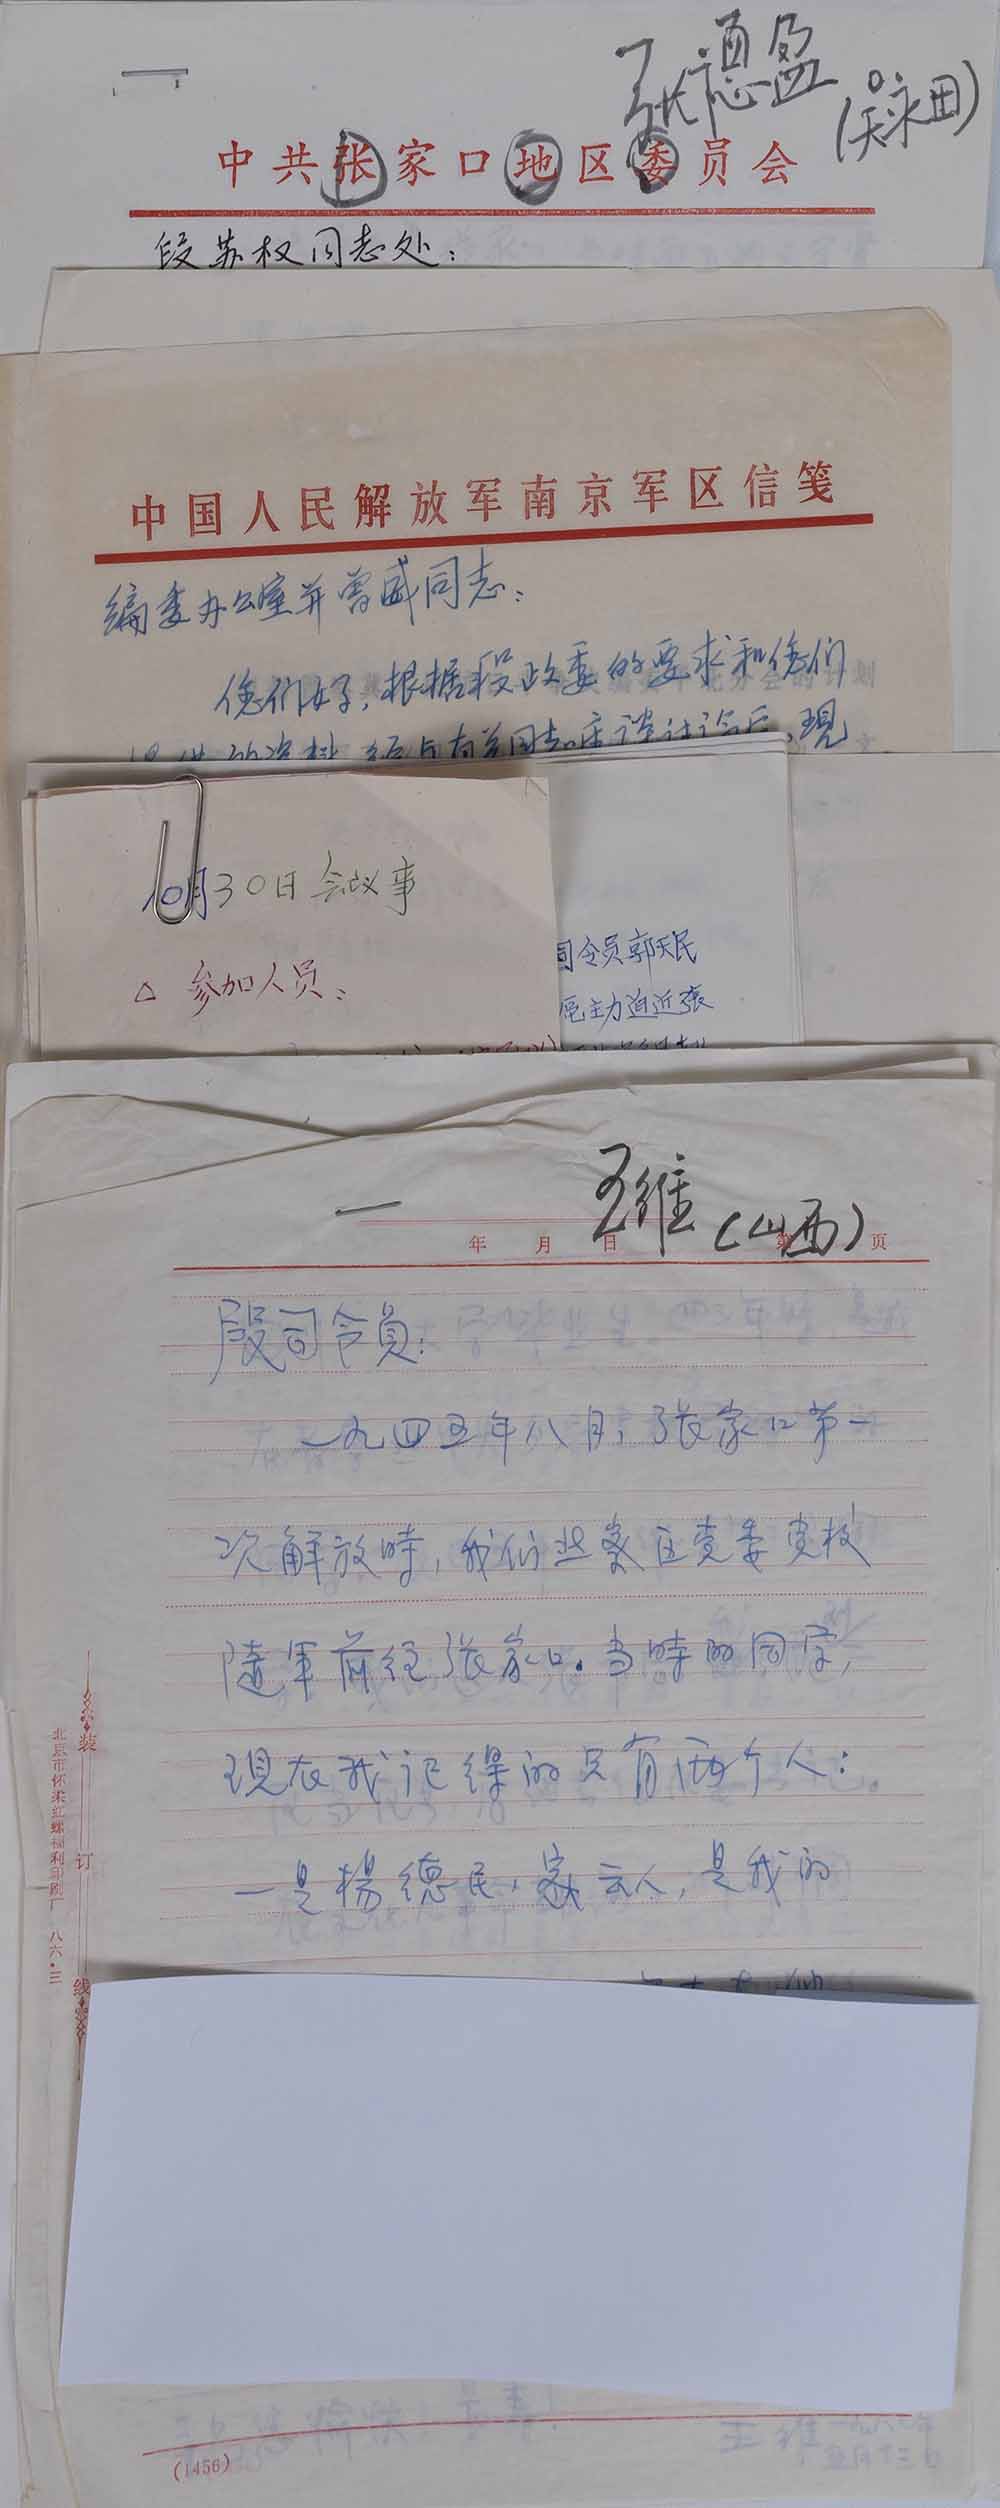 张德盈
(吴永田)
中共张家口地区委员会
段苏权同志处：
中国人民解放军南京军区信笺
编委办公室并曾威同志：
您们好，根据段政委的要求和您们
提供的资料，经与有关同志座谈讨论后，现
10月30日会议事
△ 参加人员：
司令员郭天民
主力迫近張
王维(山西)
年 月 日 第 页
段司令员：
一九四五年八月，张家口第一
次解放時，我们
区党委党校
随軍前往张家口。当時的同学，
現在我记得的只有两个人：
一是楊德民，
人，是我的
装
订
线
北京市怀柔红螺福利印刷厂 八六·三
王维
(1456)